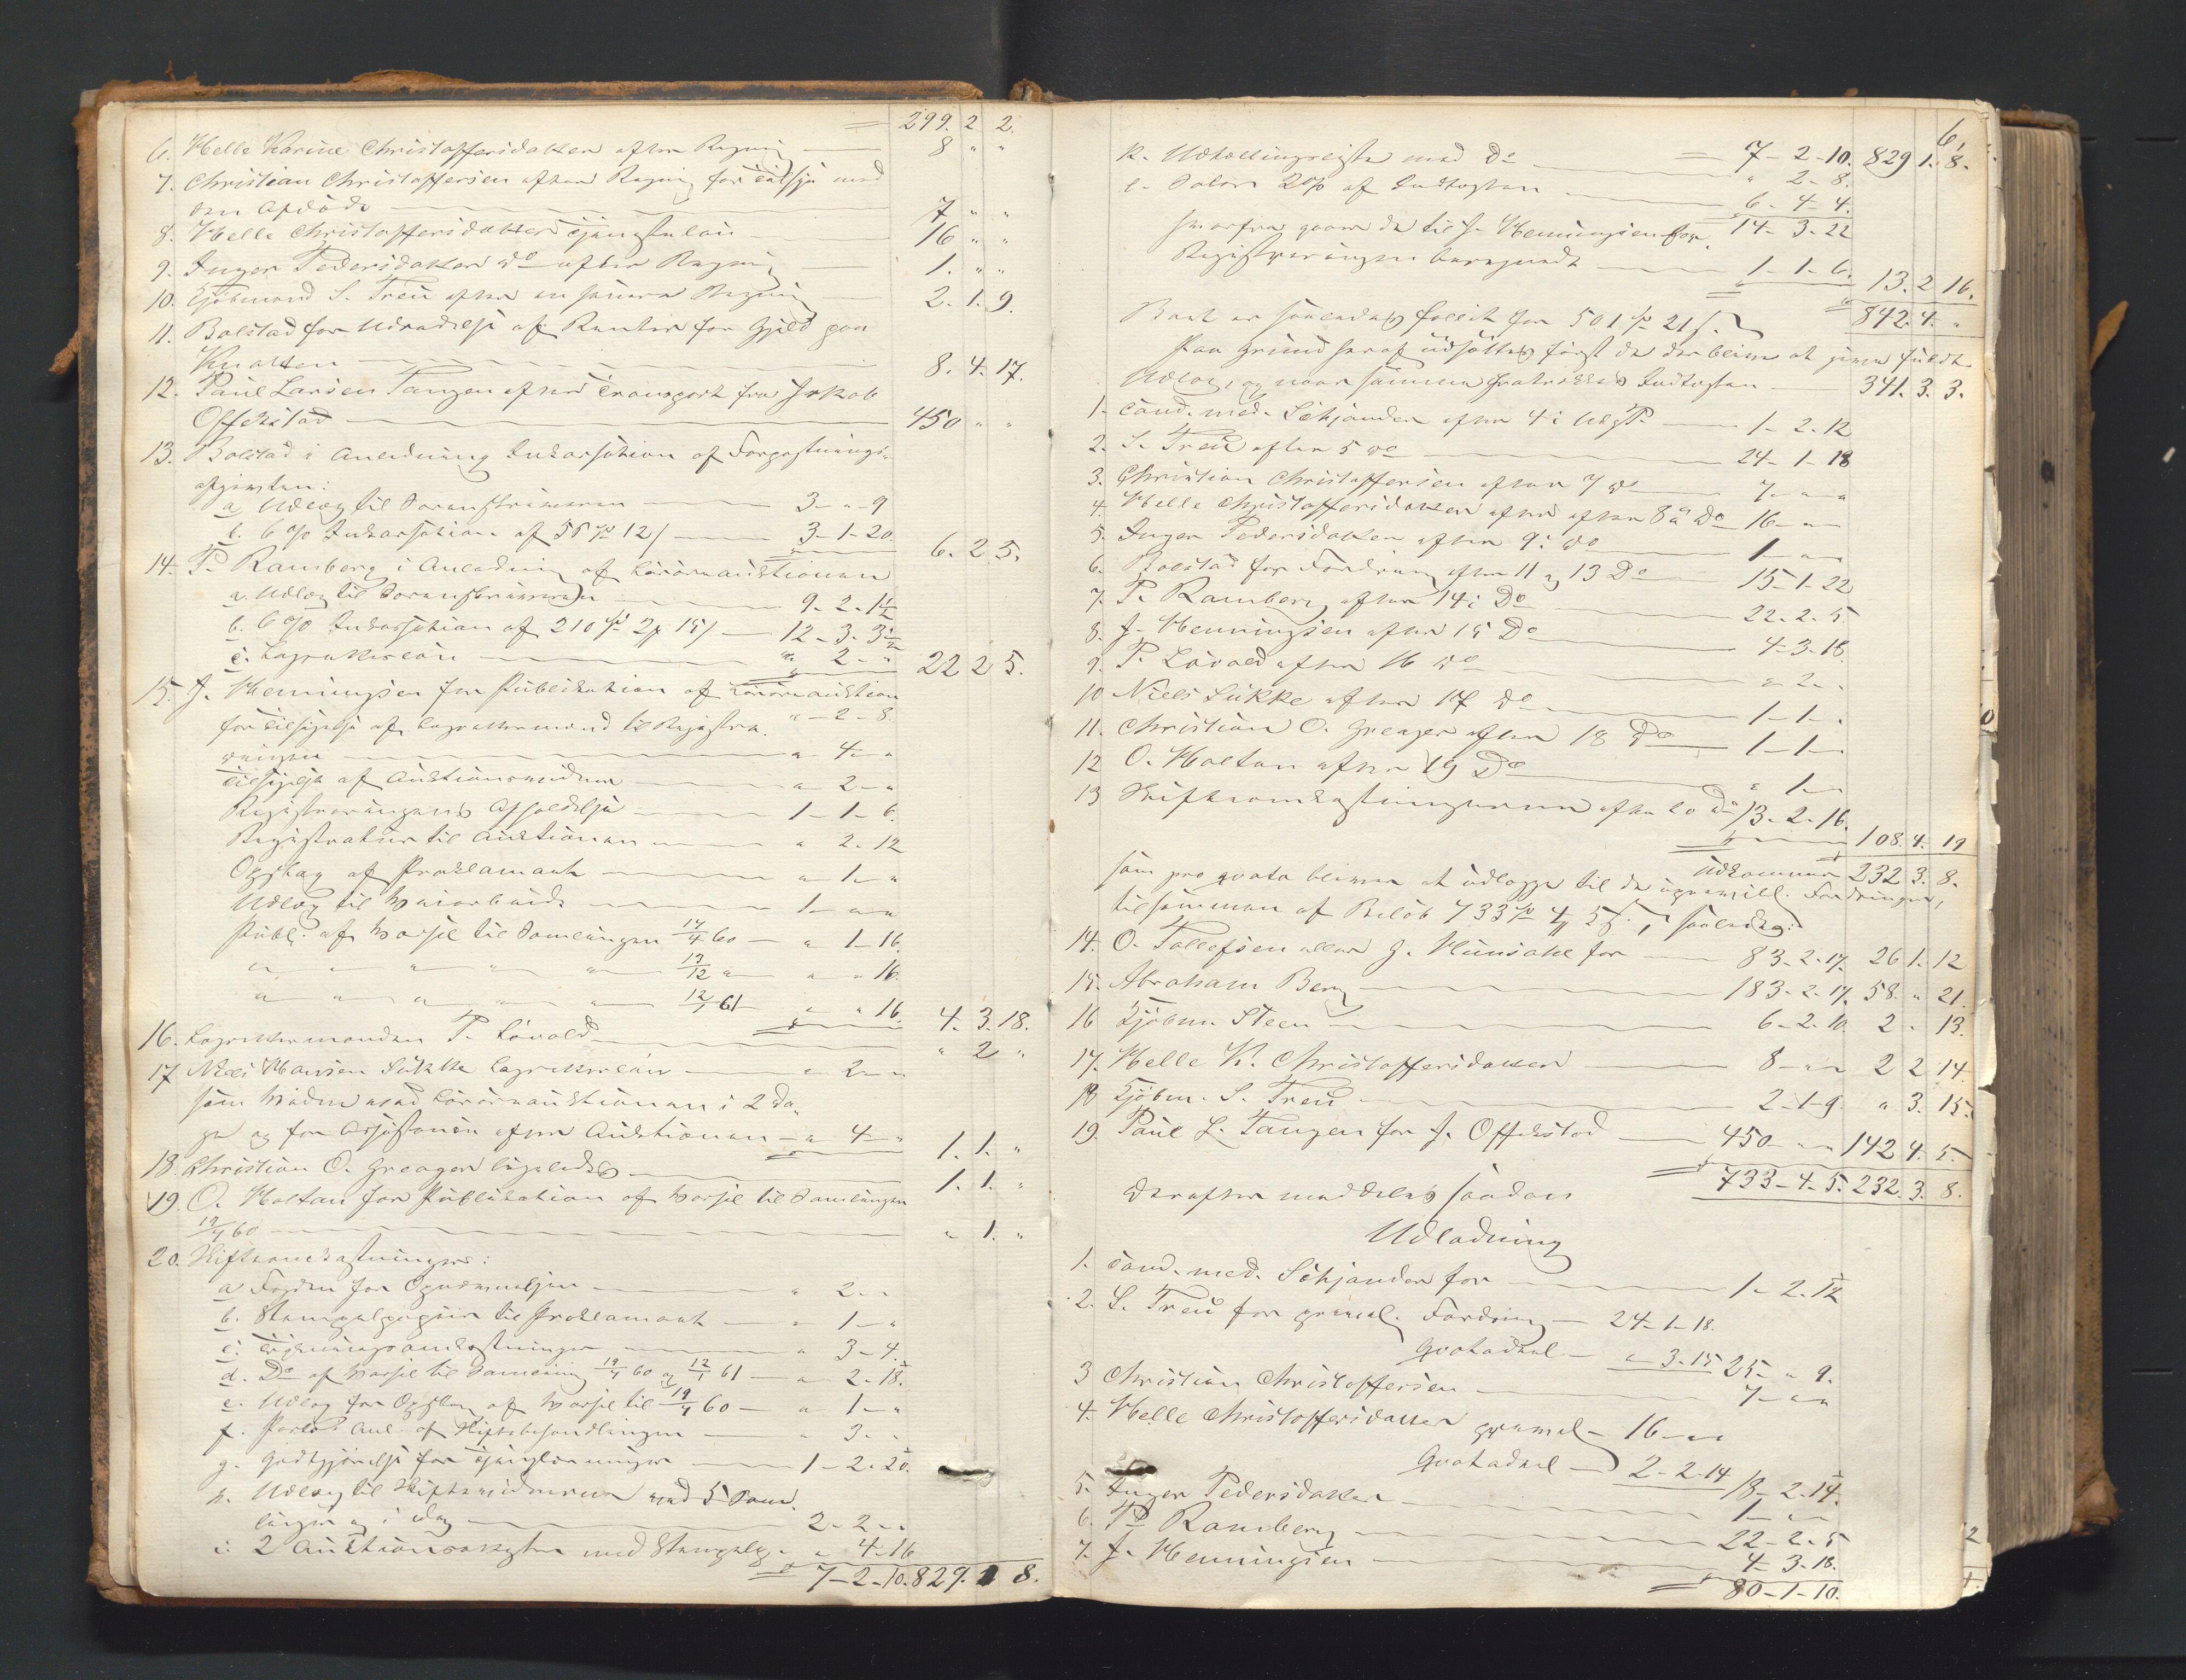 299. 2 2.
6. Helle Karine Christoffersdatter efter Regning — 8 " "
7. Christian Christoffersen efter Regning for Tilsyn med
den Afdøde — 7 " "
8. Helle Christoffersdatter Tjenesteløn — 16 " "
9. Inger Pedersdatter do efter Regning — 1. " "
10. Kjøbmand S. Treu efter en senere Regning — 2. 1. 9.
11. Bolstad for Udredelse af Renter for Gjæld paa
Knatten — 8. 4. 17.
12. Paul Larsen Tangen efter Transport fra Jakob
Offerstad — 450 " "
13. Bolstad i Anledning Inkassation af Forpagtnings-
afgiften:
a. Udlæg til Foranstående — 3 - " - 9
b. 6 % Inkassation af 56 Spd 12 s — 3 - 1 - 20.
6. 2 5.
14. P. Ramberg i Anledning af Løsøreauktionen
a. Udlæg til — 9 - 2 - 1½
b. 6 % Inkassation af 210 Spd 2 ort 15 s — 12 - 3 - 3½
c. Lagretterløn — " 2 - "
22 2 5.
15. J. Henningsen for Publikation af Løsøreauktion " - 2 - 8.
for Tilsigelse af Lagrettemænd til Registre-
ringen — " 4 - "
Tilsigelse af Auktionsvidner — " - 2 - "
Registreringens Afholdelse — 1 - 1 - 6.
Registratur til Auktionen — " 2. 12
Opslag af Proklamaet — " - 1 - "
Udlæg til — 1 - " "
Publ. af Varsel til Samlingen 17/4 60 — " 1 - 16.
" " " " " 13/12 " — " " 16.
" " " " " 12/1 61 — " " 16.
4. 3. 18.
16. Lagrettemanden P. Løvald — " 2 "
17 Niels Hansen Lukke Lagretteløn — " 2 - "
som Vidne ved Løsøreauktionen i 2 Da-
ge og for Assistence efter Auktionen — " 4 - "
1. 1. "
18. Christian O. Greager ligeledes — 1. 1. "
19. O. Holtan for Publikation af Varsel til Samlingen
19/4 60 — " 1. "
20. Skifteomkostninger:
a. — " 2 - "
b. Stempelpapir til Proklamaet — " 1 - "
c. omkostninger — " 3 - 4.
d. Do af Varsel til Samling 19/4 60 og 12/1 61 — " 2 - 18.
e. Udlæg for Opslag af Varsel til 19/4 60 — " 1 - "
f. Porto Anl. af Skiftebehandlingen — " 3. "
g. Godtgjørelse for — 1 - 2. 20.
h. Udlæg til Skiftevidnerne ved 5 Sam-
linger og i Dag — 2 - 2 - "
i. 2 med Stempelp. — " 4 - 16
7 - 2 - 10. 829. 1 8.
6.
7 - 2 - 10. 829 1. 8.
k. Udtællingsliste med Do — " 2 - 8.
l. Salær 2 % af Indtægten — 6 - 4 - 4.
14 - 3 - 22
hvorfra gaar de til J. Henningsen for
Registreringen beregnede — 1 - 1 - 6.
13. 2 16.
842. 4. "
Boet er saaledes fallit for 501 Spd 21 s.
Paa Grund heraf udsættes først de der bliver at give fuldt
Udlæg, og naar samme fratrækkes Indtægten — 341. 3. 3.
1. Cand. med. Schjander efter 4 i Udg. — 1 - 2. 12
2. S. Treu efter 5 do — 24 - 1 - 18
3. Christian Christoffersen efter 7 do — 7 - " "
4. Helle Christoffersdatter efter 8 a Do — 16 - " "
5. Inger Pedersdatter efter 9 i do — 1 - " "
6. Bolstad for Fordring efter 11 og 13 Do — 15 - 1 - 22
7. P. Ramberg efter 14 i Do — 22. 2. 5
8. J. Henningsen efter 15 Do — 4 - 3. 18.
9. P. Løvald efter 16 do — " 2 - "
10 Niels Lukke efter 17 do — 1 - 1 - "
11. Christian O. Greager efter 18 Do — 1 - 1 - "
12 O. Holtan efter 19 Do — " 1 - "
13 Skifteomkostningerne efter 20 Do 13. 2. 16.
108. 4. 19
Udkommer 232. 3. 8.
som pro qvota bliver at udlægge til de uprivill. Fordringer,
tilsammen af Beløb 733 Spd 4 ort 5 s, saaledes:
14. O. Tollefsen eller J. Hunsahl for — 83 - 2. 17. 26 1. 12
15. Abraham Berg — 183 - 2. 17. 58. " 21.
16 Kjøbm. Steen — 6 - 2. 10. 2 - 13.
17. Helle K. Christoffersdatter — 8 - " " 2 2 14.
18 Kjøbm. S. Treu — 2 - 1 - 9 " 3. 15.
19. Paul L. Tangen for J. Offerstad — 450 " " 142 4. 5.
733 - 4 - 5. 232. 3. 8.
Derefter meddeles saadan
Udlodning
1. Cand. med. Schjander for — 1 - 2. 12
2. S. Treu for privil. Fordring — 24 - 1 - 18.
Qvotadeel — " 3. 15 25 - " 9.
3 Christian Christoffersen — 7 - " "
4. Helle Christoffersdatter privil. — 16 - " "
Qvotadeel — 2 - 2. 14 18 - 2. 14.
5. Inger Pedersdatter — 1 - " "
6. P. Ramberg — 22 - 2. 5
7. J. Henningsen — 4 - 3. 18.
80 - 1 - 10.